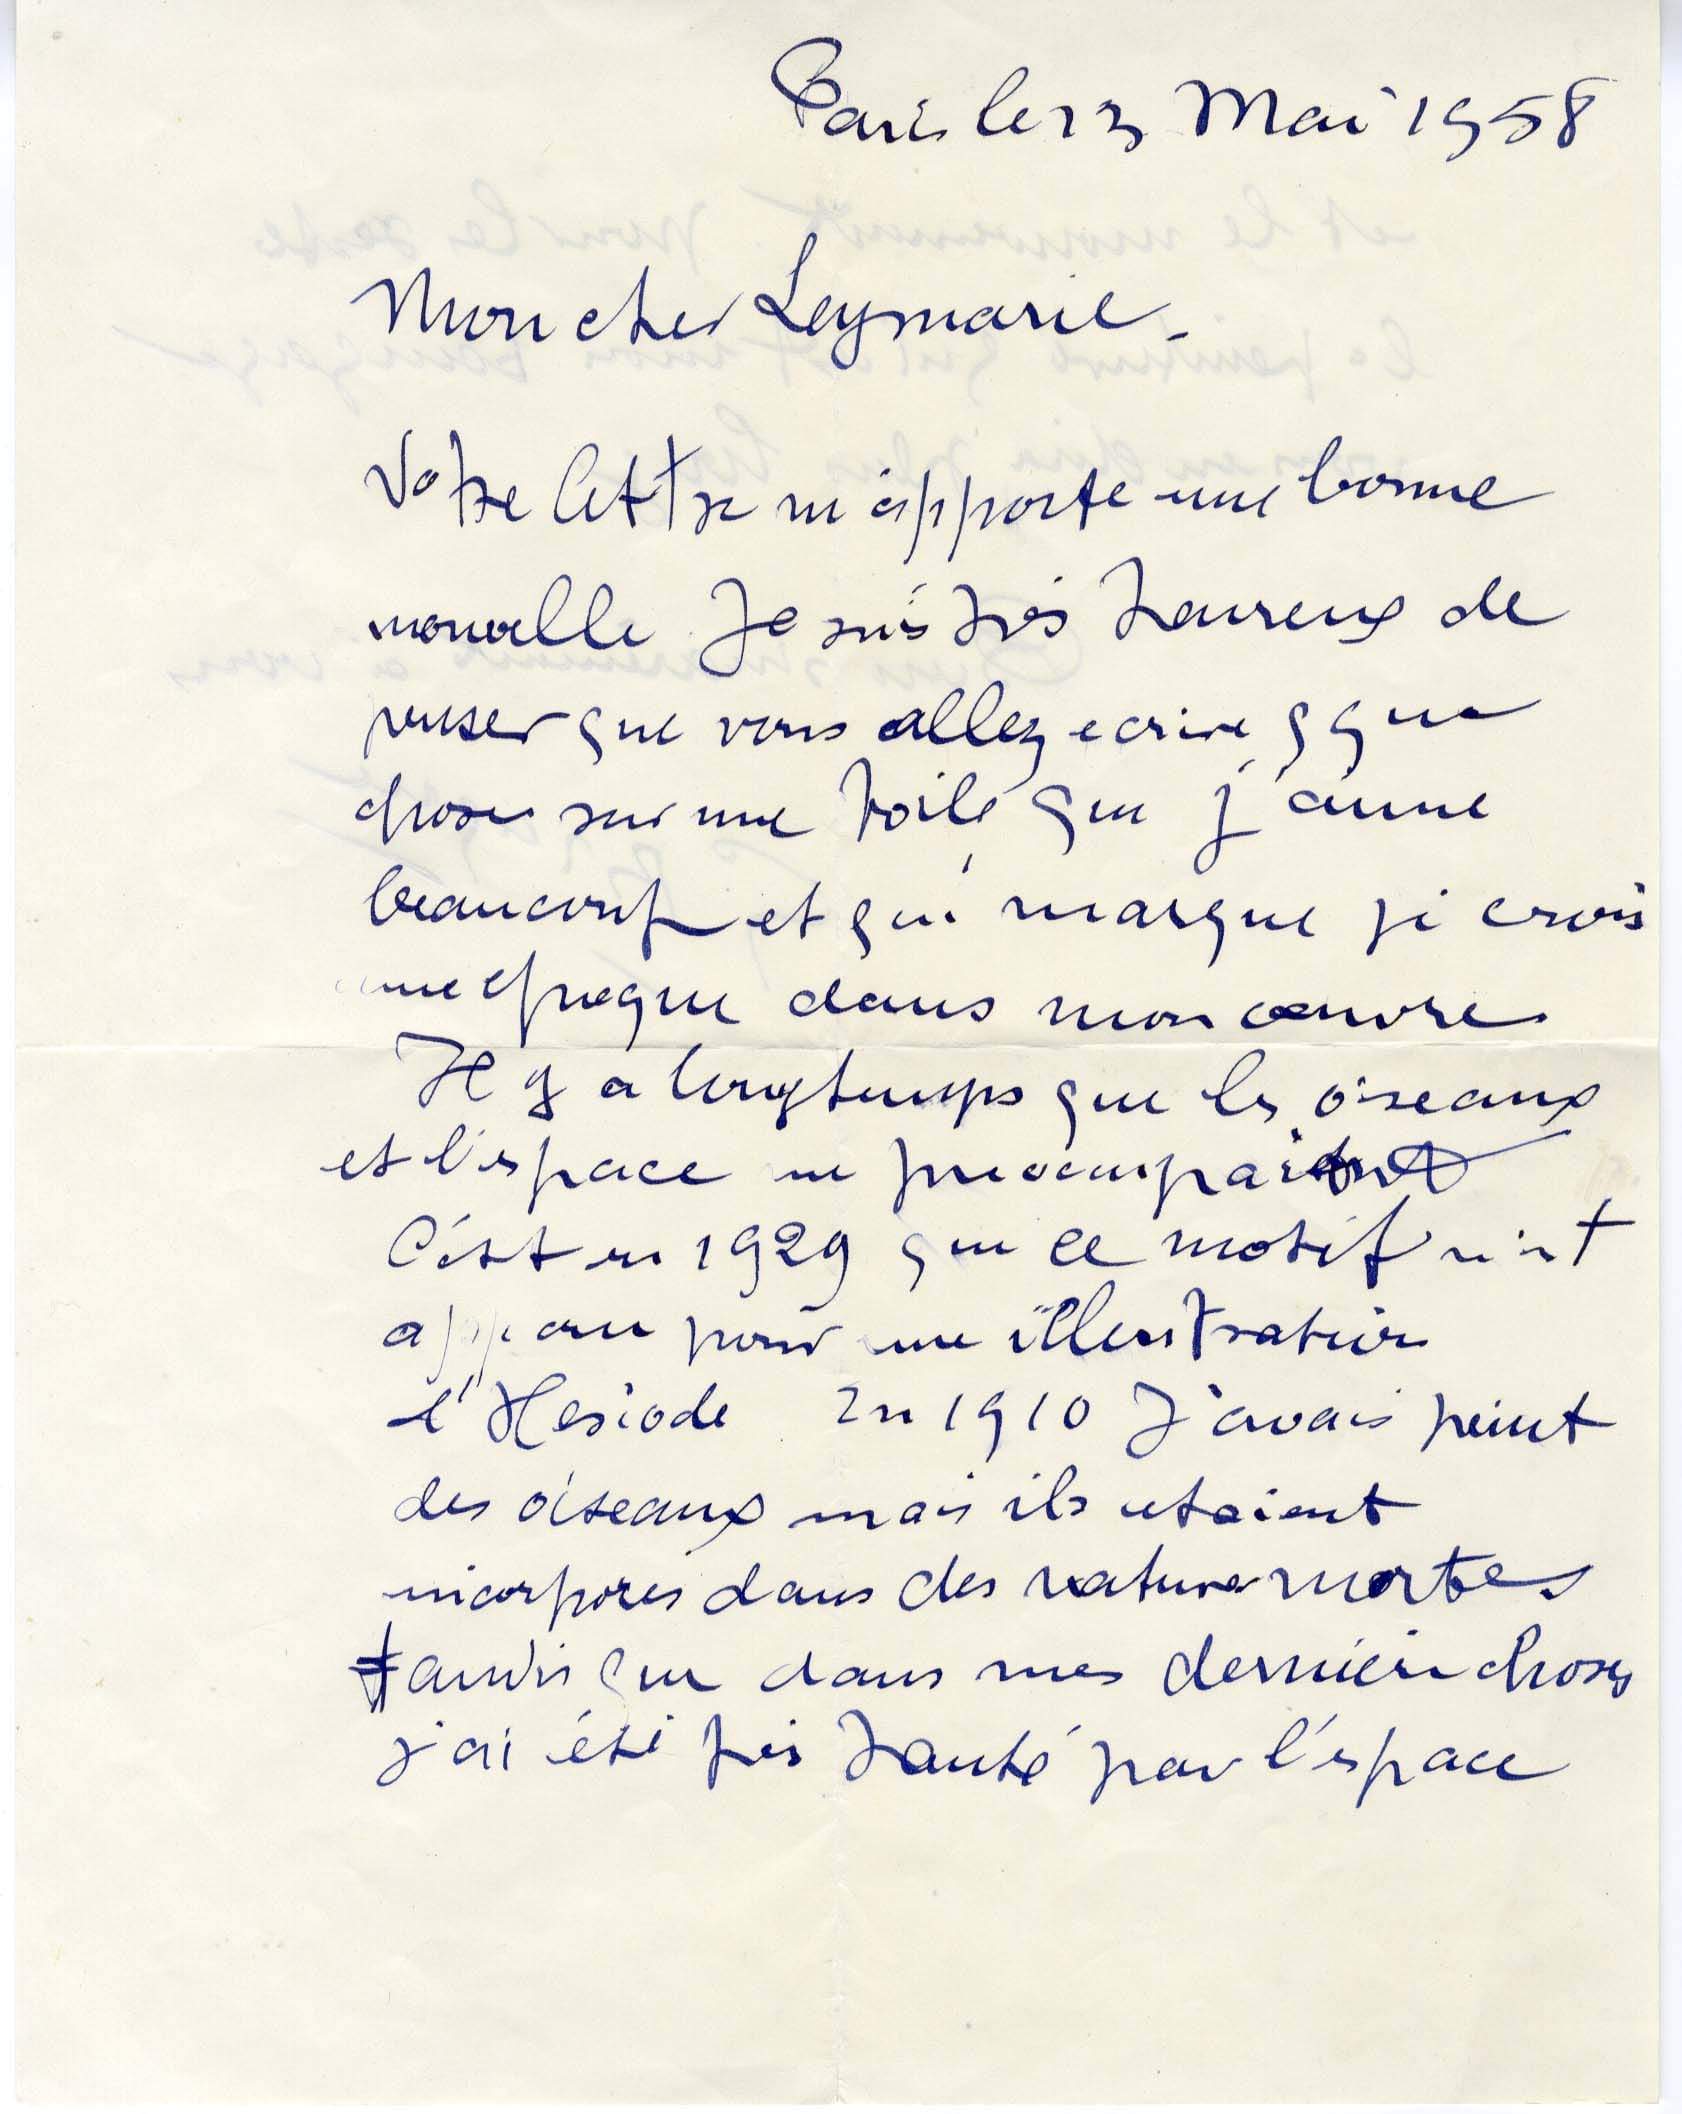 Paris le 13 Mai 1958
Mon cher Leymarie.
Votre lettre m'apporte une bonne
nouvelle Je suis très heureux de
penser que vous allez ecrire qque
chose sur une toile que j'aime
beaucoup et qui marque je crois
une epoque dans mon œuvre.
Il y a longtemps que les oiseaux
et l'espace me preocupaient
C'est en 1929 que ce motif m'est
apparu pour une illustration
d'Hesiode En 1910 J'avais peint
des oiseaux mais ils etaient
incorporés dans des natures mortes
tandis que dans mes dernière choses
j'ai été très hanté par l'espace
et le mouvement. Pour le reste
la peinture qui est mon langage
vous en dira plus long
à vous